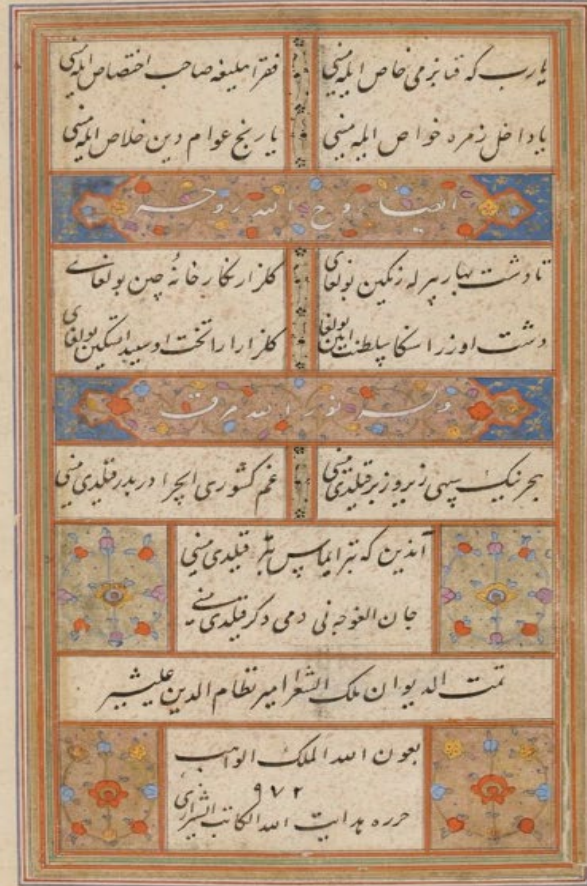 یارب که فنا بزمی خاص ایله مینی
فقر املیغه صاحب اختصاص ایله مینی
یا داخل زمره خواص ایله مینی
یا رنج عوام دین خلاص ایله مینی
ایضا روح الله روحه
تا دشت بهار بیرله رنگین بولغای
گلزار نگارخانه چین بولغای
دشت اوزرا سنکا سلطنت آیین بولغای
گلزار ارا تختاوسید تسکین بولغای
وله نور الله مرقده
هجرنینک سپهی زیر و زبر قیلدی مینی
غم کشوری ایچرا دربدر قیلدی مینی
آندین که بتر ایماس بتر قیلدی مینی
جان الغوچه نی دمی دگر قیلدی مینی
تمت الدیوان ملک الشعرا امیر نظام الدین علیشیر
بعون الله الملک الواهب
۹۷۲
حرره هدایت الله الکاتب الشیرازی